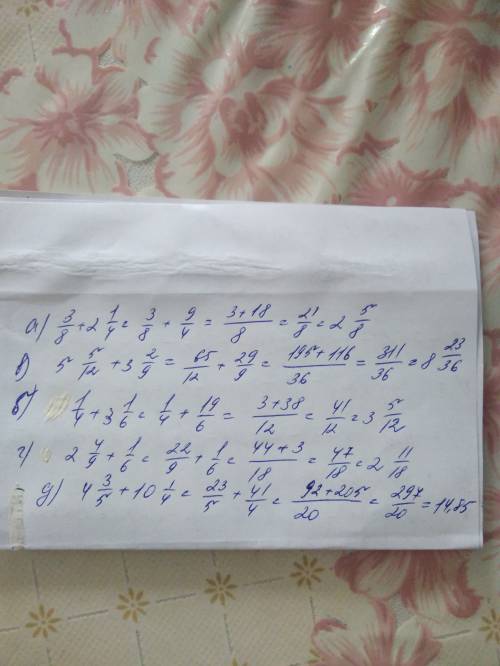 а) 3/8 + 2 1/4 = 3/8 + 9/4 = (3+18)/8 = 21/8 = 2 5/8
в) 5 5/12 + 3 2/9 = 65/12 + 29/9 = (195+116)/36 = 311/36 = 8 23/36
б) 1/4 + 3 1/6 = 1/4 + 19/6 = (3+38)/12 = 41/12 = 3 5/12
г) 2 4/9 + 1/6 = 22/9 + 1/6 = (44+3)/18 = 47/18 = 2 11/18
д) 4 3/5 + 10 1/4 = 23/5 + 41/4 = (92+205)/20 = 297/20 = 14,85